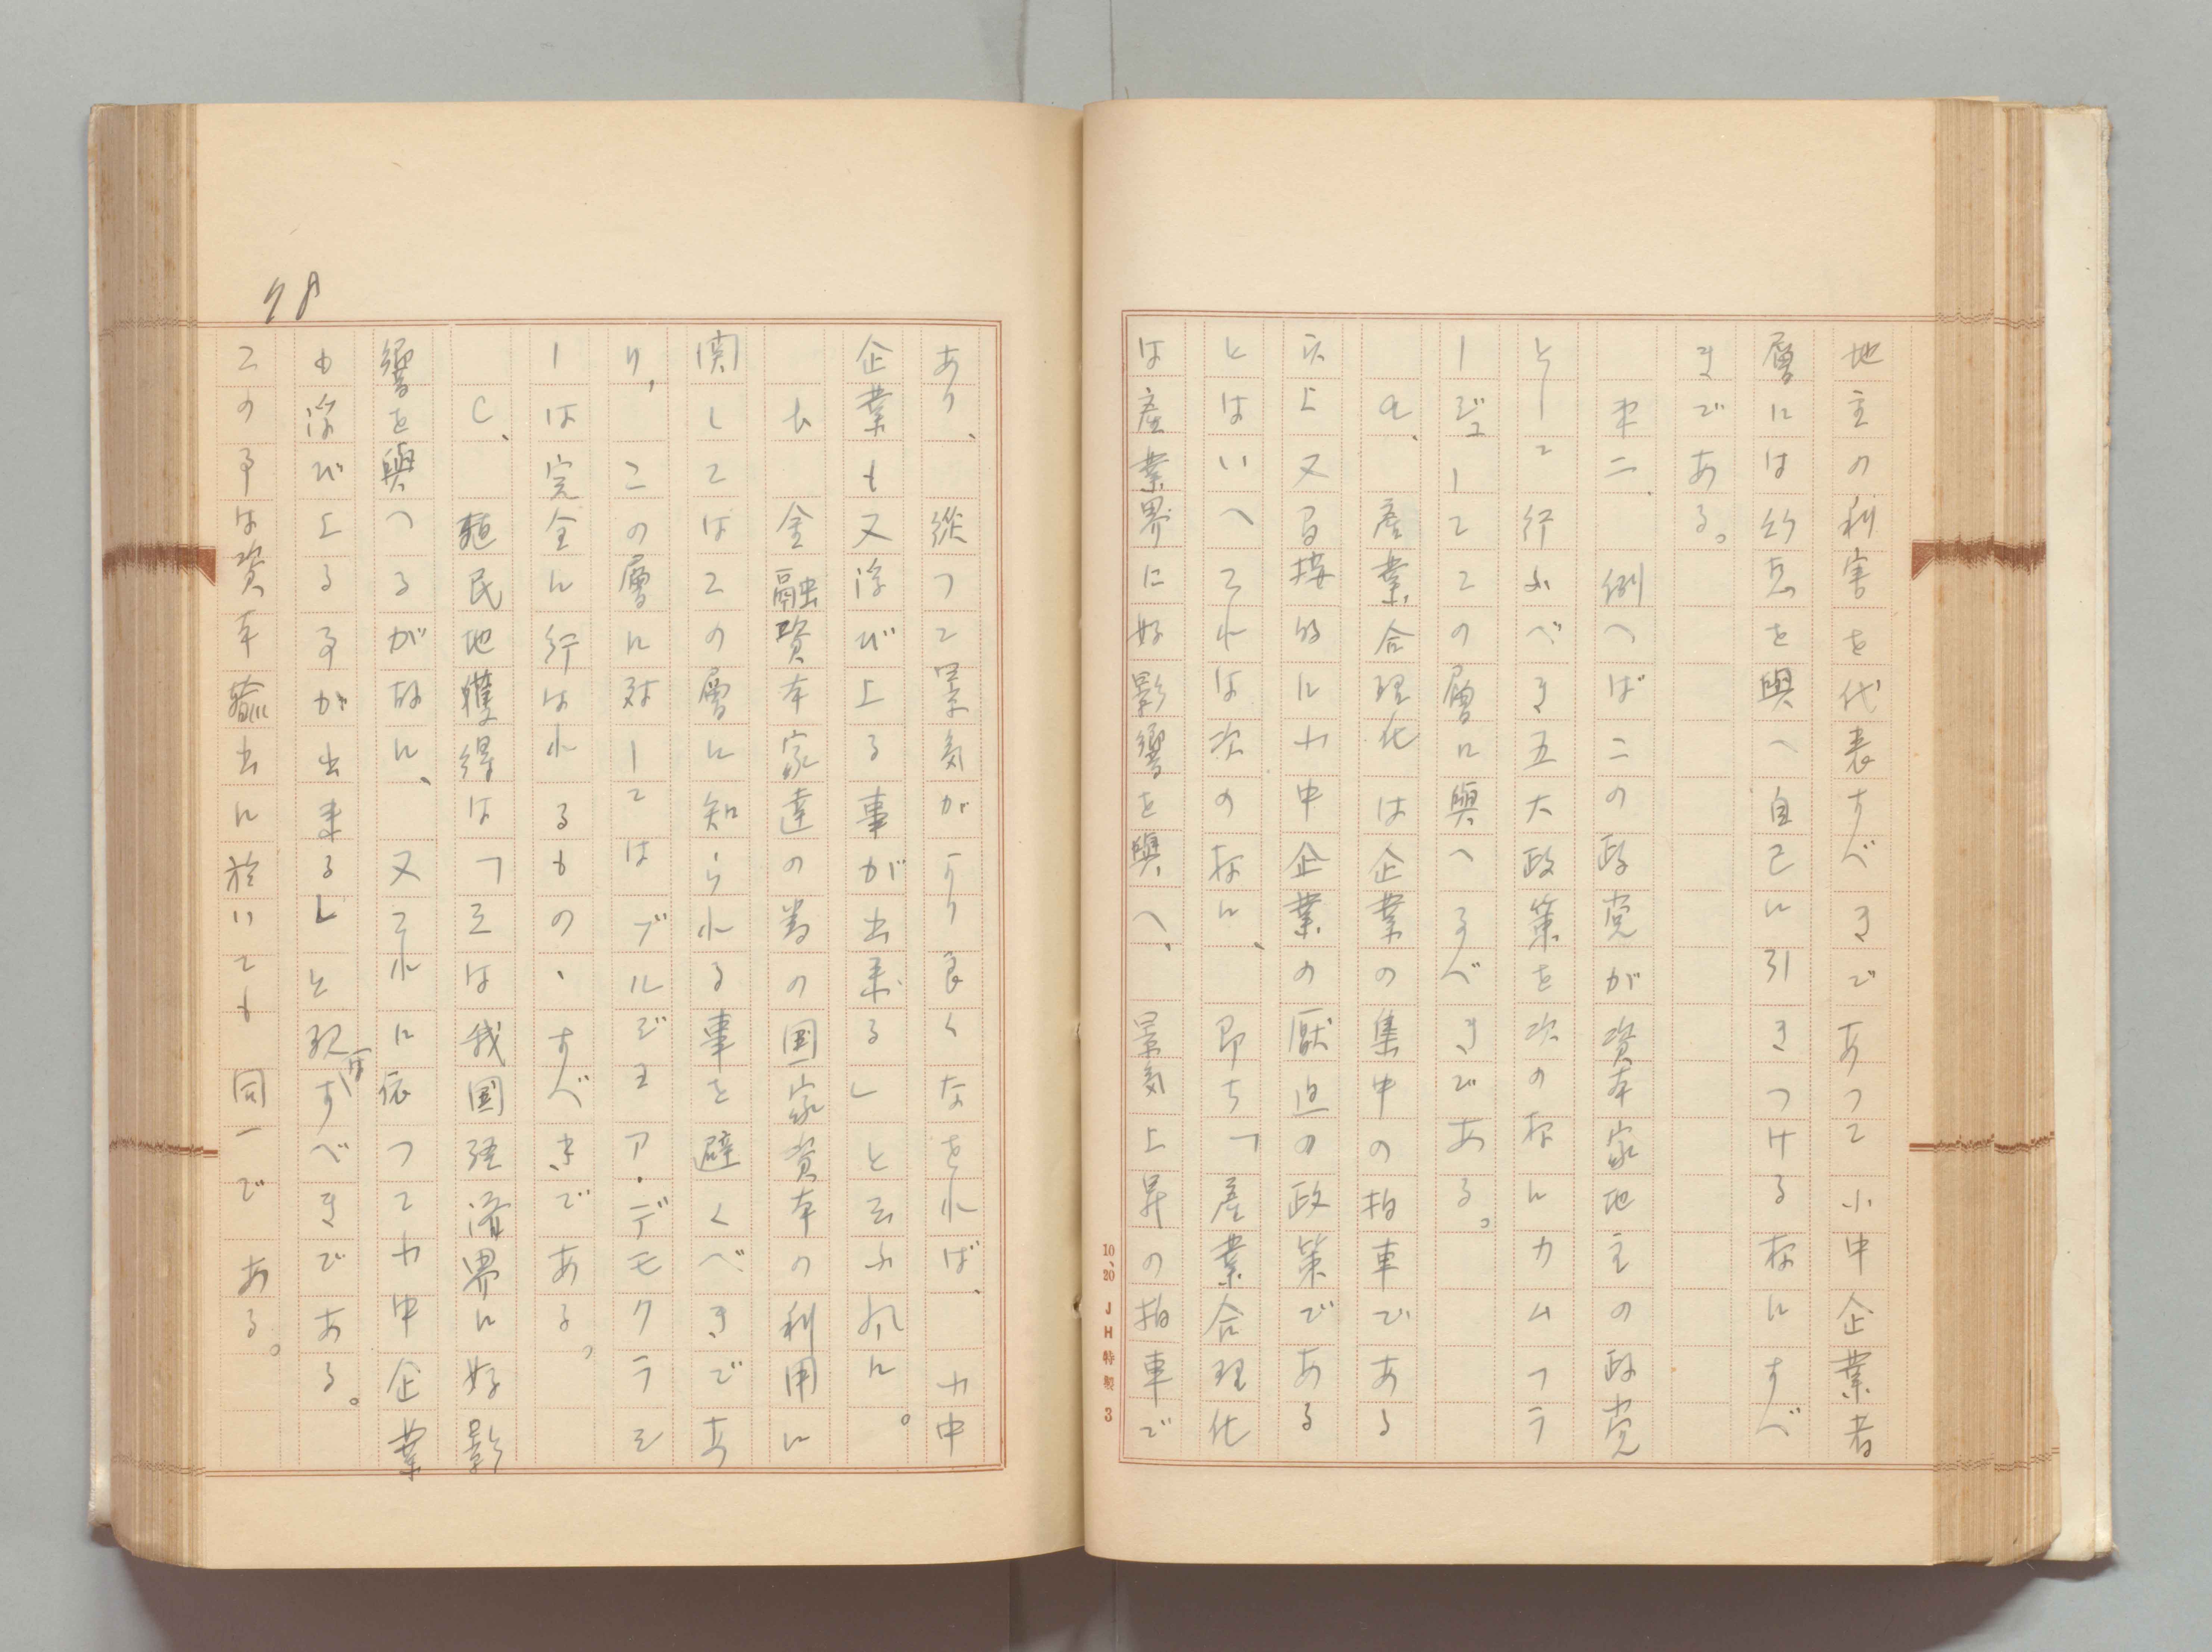 地主の利害を代表すべきであつて小中企業者
層には幻惑を與へ自己に引きつける様にすべ
きである。
第二、例へば二の政党が資本家地主の政党
として行ふべき五大政策を次の様にカムフラ
ージュしてこの層に與へるべきである。
a、産業合理化は企業の集中の拍車である
以上又間接的に小中企業の厭迫の政策である
とはいへそれは次の様に、即ち「産業合理化
は産業界に好影響を與へ、景気上昇の拍車で
10、20 JH特製 3
あり、從つて景気がより良くなをれば、小中
企業も又浮び上る事が出来る」と云ふ風に。
b 金融資本家達の為の国家資本の利用に
関してはこの層に知られる事を避くべきであ
り、この層に対してはブルジョア・デモクラシ
ーは完全に行はれるもの、すべきである。
C、殖民地獲得は「之は我国経済界に好影
響を與へるが故に、又それに依つて小中企業
も浮び上る事が出来るしと釈すべきである。
この事は資本輸出に於いても同一である。